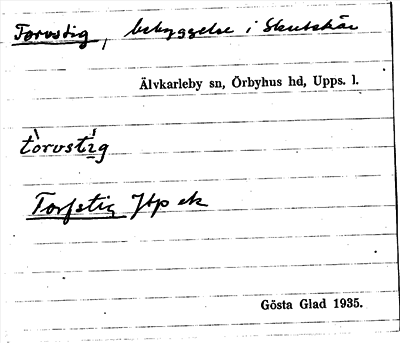 Torvstig, bebyggelse i Skutskär
Älvkarleby sn, Örbyhus hd, Upps. l.
tòrvstíg
Torfstig Jtp ek
Gösta Glad 1935.